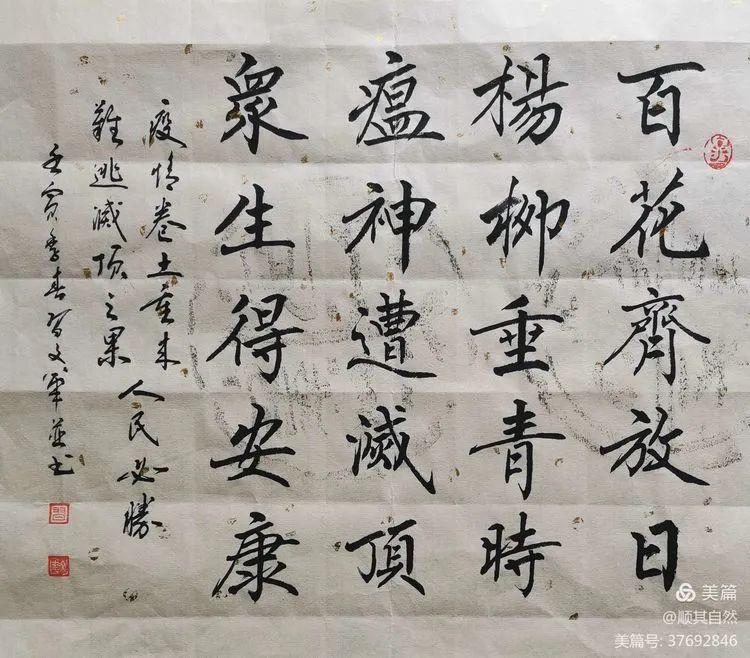 百花齊放日
楊柳垂青時
瘟神遭滅頂
衆生得安康
疫情卷土重来人民必勝
難逃滅顶之果
壬寅季春習文軍并书
美篇
@顺其自然
美篇号: 37692846